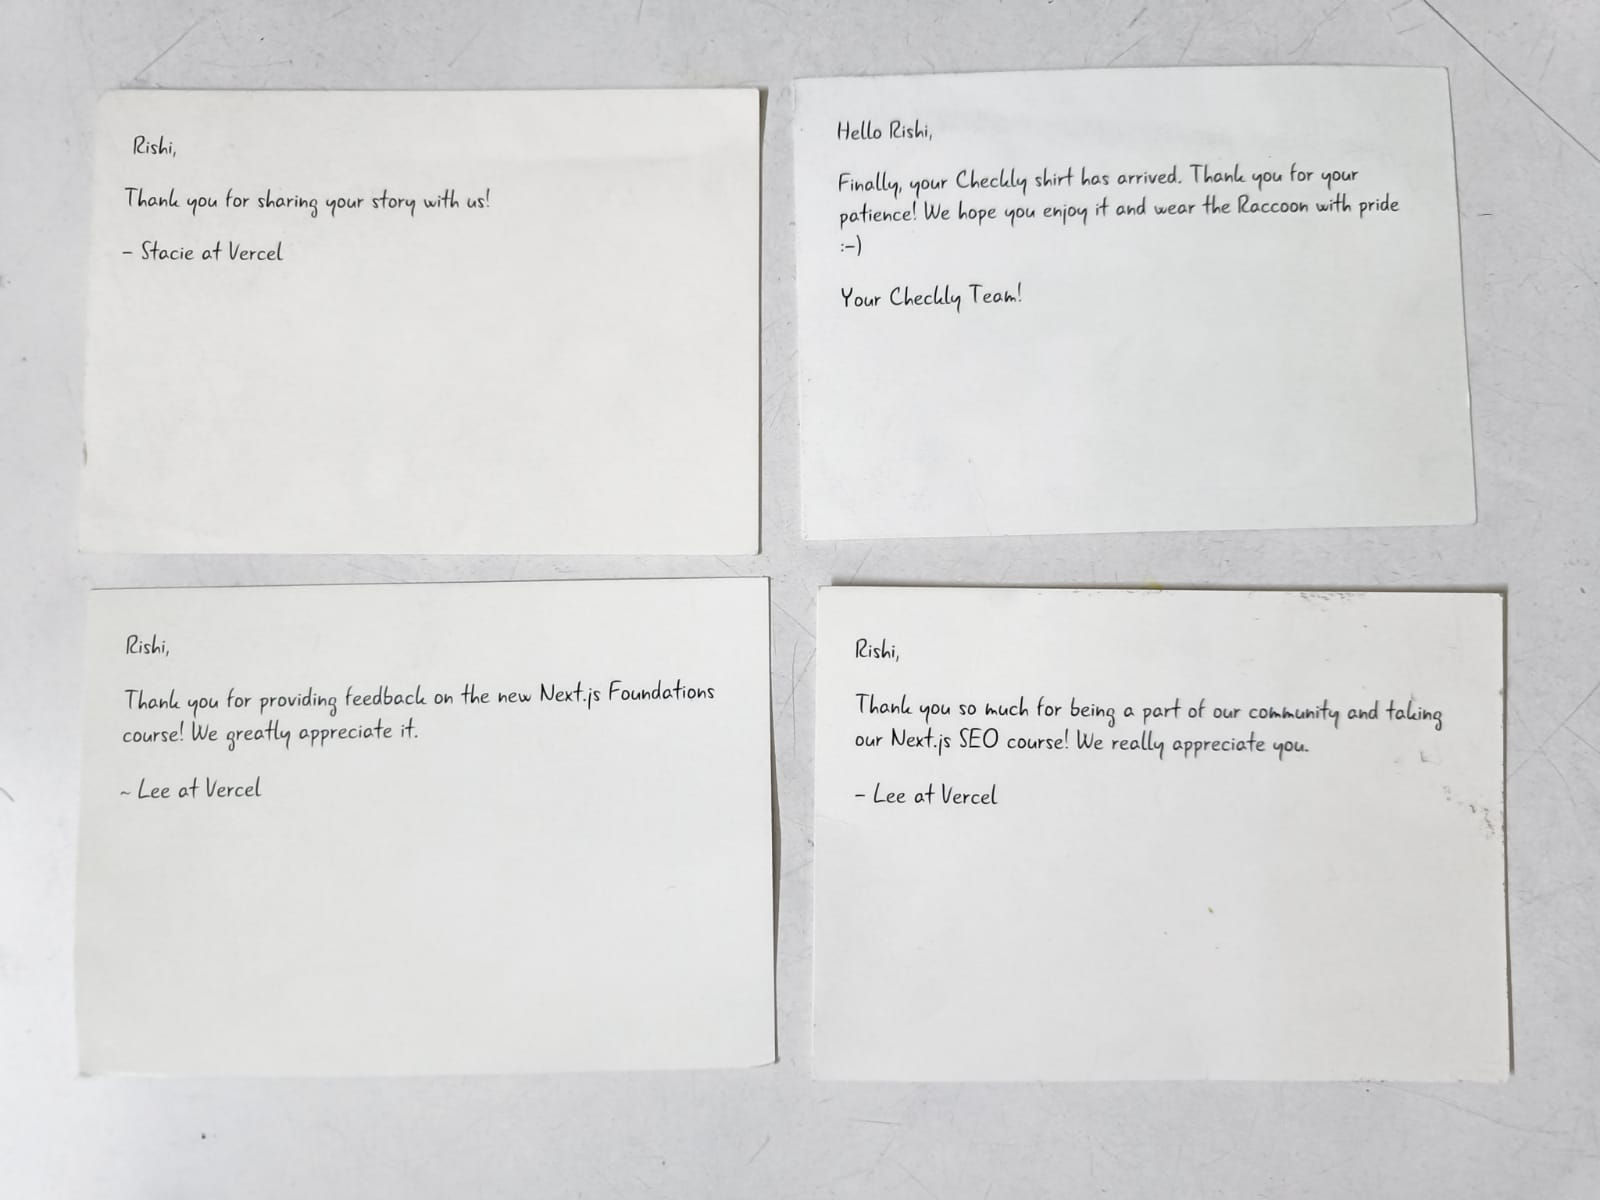 Rishi,
Thank you for sharing your story with us!
- Stacie at Vercel
Hello Rishi,
Finally, your Checkly shirt has arrived. Thank you for your
patience! We hope you enjoy it and wear the Raccoon with pride
:-)
Your Checkly Team!
Rishi,
Thank you for providing feedback on the new Next.js Foundations
course! We greatly appreciate it.
~ Lee at Vercel
Rishi,
Thank you so much for being a part of our community and taking
our Next.js SEO course! We really appreciate you.
- Lee at Vercel